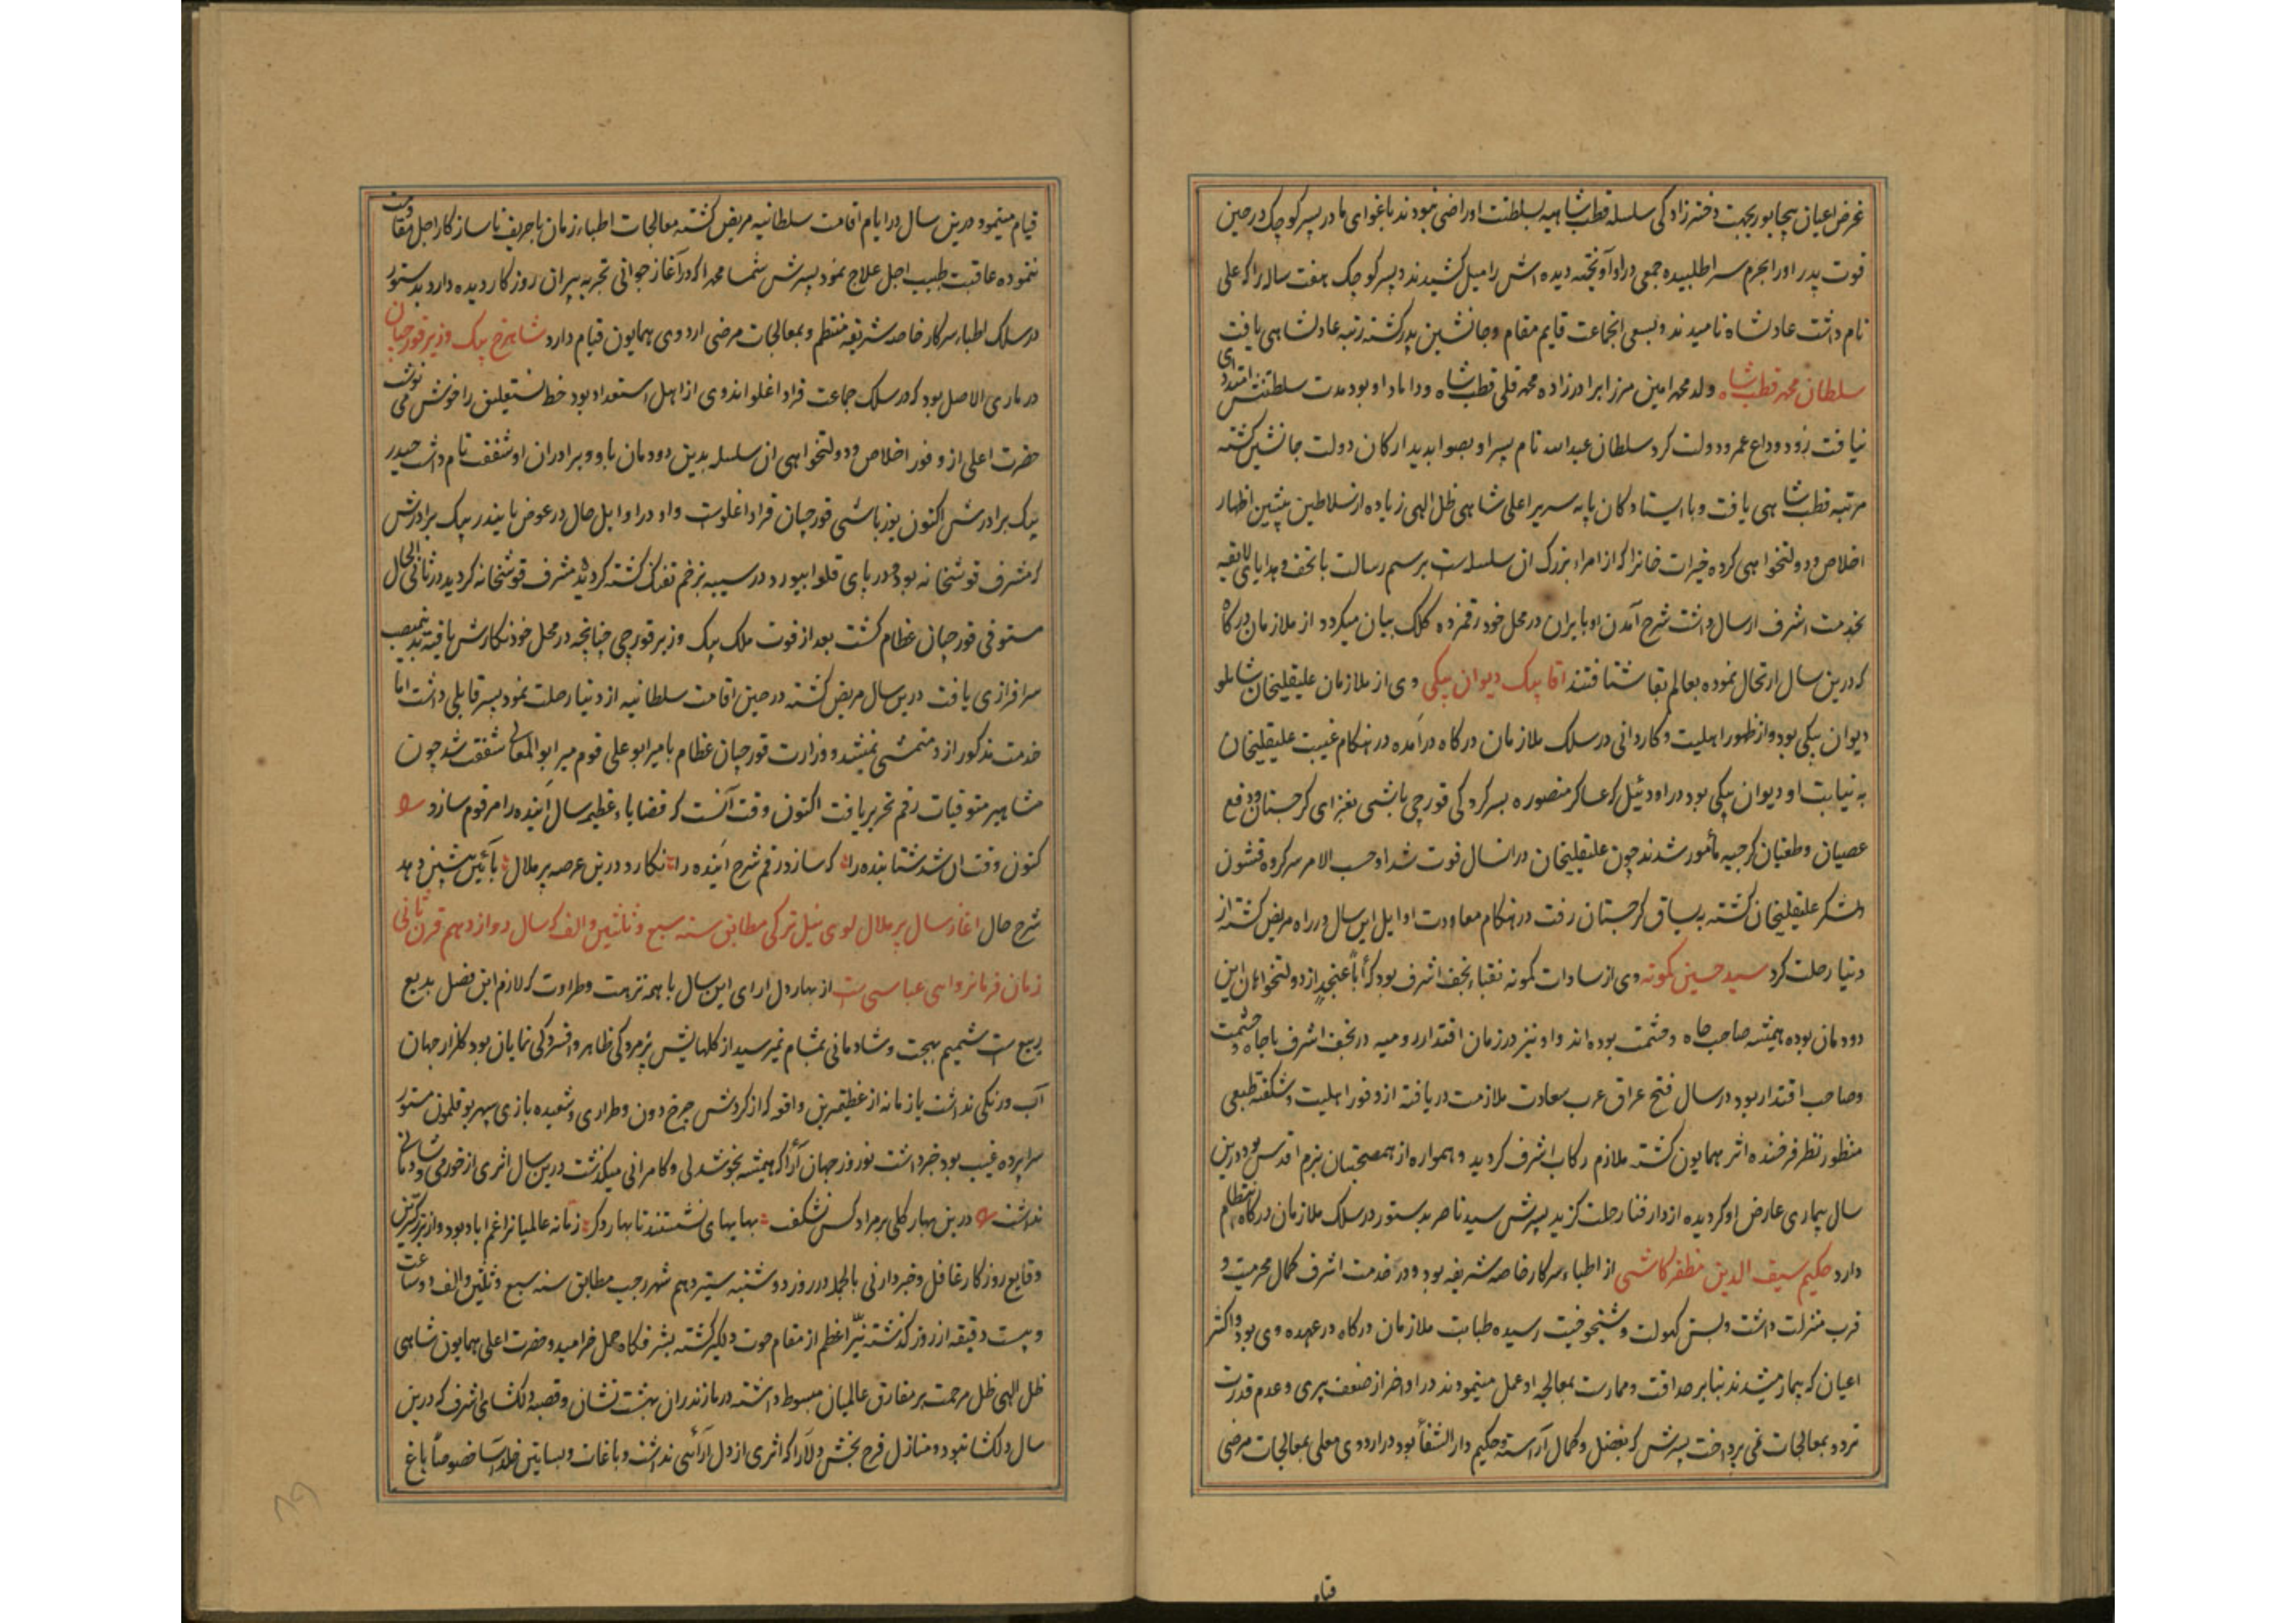 غرض اعیان بیجاپور بجهت دخترزادگی سلسله قطب شاهیه بسلطنت او راضی نبودند باغوای مادر پسر کوچک در حین
فوت پدر او را بحرم سرا طلبیده جمعی در او آویخته دیده اش را میل کشیدند و پسر کوچک هفت ساله را که علی
نام داشت عادلشاه نامیدند و بسعی انجماعت قایم مقام و جانشین پدر گشته رتبه عادلشاهی یافت
سلطان محمد قطب شاه ولد محمد امین مرزا برادرزاده محمد قلی قطب شاه و داماد او بود مدت سلطنتش امتدادی
نیافت زود وداع عمر و دولت کرد سلطان عبدالله نام پسر او بصوابدید ارکان دولت جانشین گشته
مرتبه قطب شاهی یافت و با ایستادگان پایه سریر اعلی شاهی ظل الهی زیاده از سلاطین پیشین اظهار
اخلاص و دولتخواهی کرده خیرات خانرا که از امراء بزرگ ان سلسله است برسم رسالت با تحف و هدایای لایقه
بخدمت اشرف ارسال داشت شرح آمدن او بایران در محل خود رقمزده کلک بیان میگردد از ملازمان درگاه
که درین سال ارتحال نموده بعالم بقا شتافتند اقا بیک دیوان بیگی وی از ملازمان علیقلیخان شاملو
دیوان بیگی بود و از ظهور اهلیت و کاردانی در سلک ملازمان درگاه درآمده در هنگام غیبت علیقلیخان
به نیابت او دیوان بیگی بود در اودئیل که عساکر منصوره بسرکردگی قورچی باشی بغزای گرجستان و دفع
عصیان و طغیان گرجیه مأمور شدند چون علیقلیخان در انسال فوت شد او حسب الامر سرکرده قشون
و لشکر علیقلیخان گشته به یساق گرجستان رفت در هنگام معاودت اوایل این سال در راه مریض گشته از
دنیا رحلت کرد سید حسین کمونه وی از سادات کمونه نقباء نجف اشرف بود که أباً عنجدٍ از دولتخواهان این
دودمان بوده همیشه صاحب جاه و حشمت بوده اند و او نیز در زمان اقتدار رومیه در نجف اشرف با جاه و حشمت
و صاحب اقتدار بود در سال فتح عراق عرب سعادت ملازمت دریافته از وفور اهلیت و شکفته طبعی
منظور نظر فرخنده اثر همایون گشته ملازم رکاب اشرف گردید و همواره از همصحبتان بزم اقدس بود درین
سال بیماری عارض او گردیده از دار فنا رحلت گزید پسرش سید ناصر بدستور در سلک ملازمان درگاه انتظام
دارد حکیم سیف الدین مظفر کاشی از اطباء سرکار خاصه شریفه بود و در خدمت اشرف کمال محرمیت و
قرب منزلت داشت و بسن کهولت و شیخوخیت رسیده طبابت ملازمان درگاه در عهده وی بود و اکثر
اعیان که بیمار میشدند بنابر صداقت و ممارست بمعالجه او عمل مینمودند در اواخر از ضعف پیری و عدم قدرت
تردد بمعالجات نمی پرداخت پسرش که بفضل و کمال آراسته و حکیم دار الشفأ بود در اردوی معلی بمعالجات مرضی
قیام
قیام مینمود درین سال در ایام اقامت سلطانیه مریض گشته معالجات اطباء زمان با حریف ناسازگار اجل مقاومت
ننموده عاقبت طبیب اجل علاج نمود پسرش شمسا محمد را که در آغاز جوانی تجربه پیران روزگار دیده دارد بدستور
در سلک اطباء سرکار خاصه شریفه منتظم و بمعالجات مرضی اردوی همایون قیام دارد شاهرخ بیک وزیر قورچیان
در ماری الاصل بود که در سلک جماعت قراداغلو اند وی از اهل استعداد بود خط نستعلیق را خوش می نوشت
حضرت اعلی از وفور اخلاص و دولتخواهی ان سلسله بدین دودمان با او و برادران او شفقت تام داشت حیدر
بیک برادرش اکنون یوزباشی قورچیان قراداغلوست و او در اوایل حال در عوض بایندر بیک برادرش
که مشرف قوشخانه بود و در پای قلوا بیورد در سیبه بزخم تفنگ کشته گردید مشرف قوشخانه گردید در ثانی الحال
مستوفی قورچیان عظام گشت بعد از فوت ملک بیک وزیر قورچی چنانچه در محل خود نگارش یافته بدین منصب
سرافرازی یافت درین سال مریض گشته در حین اقامت سلطانیه از دنیا رحلت نمود پسر قابلی داشت اما
خدمت مذکور ازو متمشی نمیشد و وزارت قورچیان عظام بامیر ابو علی قوم میر ابو المعالی شفقت شد چون
مشاهیر متوفیات رقم تحریر یافت اکنون وقت آنست که قضایاء عظیمه سال آینده را مرقوم سازد
کنون وقت ان شد شتابنده را که سازد رقم شرح آینده را نگارد درین عرصه پر ملال بآئین پیشین دهد
شرح حال اغاز سال پر ملال لوی ئیل ترکی مطابق سنه سبع و ثلثین و الف که سال دوازدهم قرن ثانی
زمان فرمانروایی عباسی است از بهار دل ارای این سال با همه نزهت و طراوت که لازم این فصل بدیع
ربیع است شمیم بهجت و شادمانی بمشام نمیرسید از گلهایش پژمردگی ظاهر و افسردگی نمایان بود گلزار جهان
آب و رنگی نداشت یا زمانه از عظیمترین واقعه که از گردش چرخ دون و طراری و شعبده بازی سپهر بوقلمون مستور
سراپرده غیب بود خبر داشت نوروز جهان آرا که همیشه بخوشدلی و کامرانی میگذشت درین سال اثری از خورمی و شادمانی
نداشت درین بهار گلی بر مراد کس نشکفت بهایهای نشستند تا بهار دگر زمانه عالمیانرا غم اباد بود و از بزرگترین
وقایع روزگار غافل و خبردار نی بالجمله در روز دوشنبه سیزدهم شهر رجب مطابق سنه سبع و ثلثین و الف دو ساعت
و بیست دقیقه از روز گذشته نیّر اعظم از مقام حوت دلگیر گشته بشرفگاه حمل خرامید و حضرت اعلی همایون شاهی
ظل الهی ظل مرحمت بر مفارق عالمیان مبسوط داشته در مازندران بهشت نشان و قصبه دلگشای اشرف که درین
سال دلگشا نبود و منازل فرح بخش دلآرا که اثری از دل آرائی نداشت و باغات و بساتین خلد آسا خصوصاً باغ